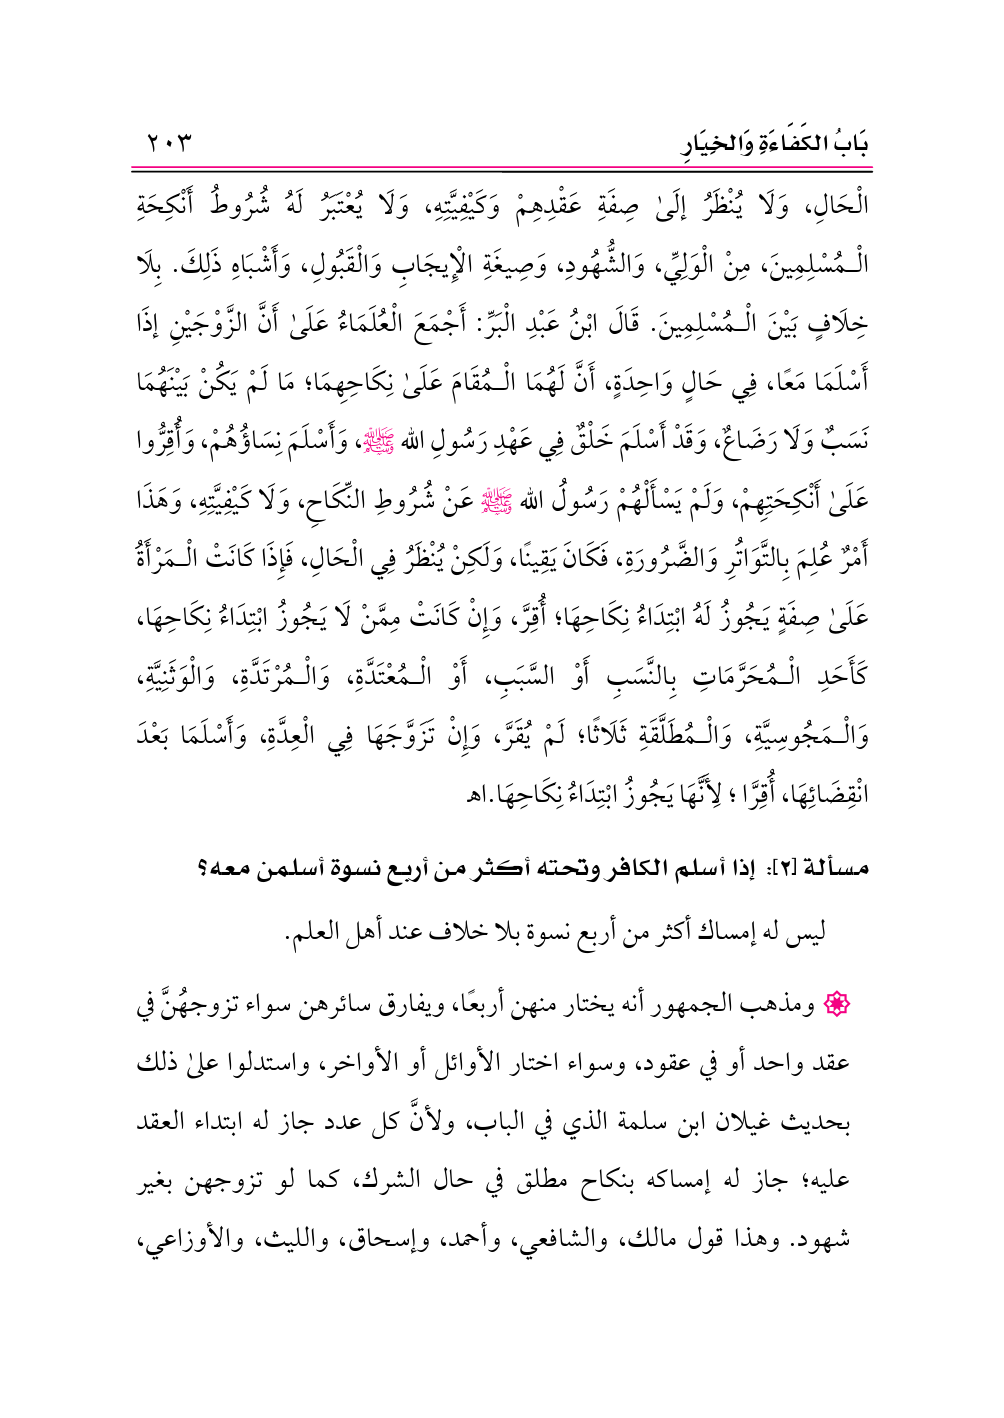 بَابُ الكَفَاءَةِ وَالخِيَارِ ٢٠٣
الْحَالِ، وَلَا يُنْظَرُ إلَىٰ صِفَةِ عَقْدِهِمْ وَكَيْفِيَّتِهِ، وَلَا يُعْتَبَرُ لَهُ شُرُوطُ أَنْكِحَةِ
الْـمُسْلِمِينَ، مِنْ الْوَلِيِّ، وَالشُّهُودِ، وَصِيغَةِ الْإِيجَابِ وَالْقَبُولِ، وَأَشْبَاهِ ذَلِكَ. بِلَا
خِلَافٍ بَيْنَ الْـمُسْلِمِينَ. قَالَ ابْنُ عَبْدِ الْبَرِّ: أَجْمَعَ الْعُلَمَاءُ عَلَىٰ أَنَّ الزَّوْجَيْنِ إذَا
أَسْلَمَا مَعًا، فِي حَالٍ وَاحِدَةٍ، أَنَّ لَهُمَا الْـمُقَامَ عَلَىٰ نِكَاحِهِمَا؛ مَا لَمْ يَكُنْ بَيْنَهُمَا
نَسَبٌ وَلَا رَضَاعٌ، وَقَدْ أَسْلَمَ خَلْقٌ فِي عَهْدِ رَسُولِ الله ﷺ، وَأَسْلَمَ نِسَاؤُهُمْ، وَأُقِرُّوا
عَلَىٰ أَنْكِحَتِهِمْ، وَلَمْ يَسْأَلْهُمْ رَسُولُ الله ﷺ عَنْ شُرُوطِ النِّكَاحِ، وَلَا كَيْفِيَّتِهِ، وَهَذَا
أَمْرٌ عُلِمَ بِالتَّوَاتُرِ وَالضَّرُورَةِ، فَكَانَ يَقِينًا، وَلَكِنْ يُنْظَرُ فِي الْحَالِ، فَإِذَا كَانَتْ الْـمَرْأَةُ
عَلَىٰ صِفَةٍ يَجُوزُ لَهُ ابْتِدَاءُ نِكَاحِهَا؛ أُقِرَّ، وَإِنْ كَانَتْ مِمَّنْ لَا يَجُوزُ ابْتِدَاءُ نِكَاحِهَا،
كَأَحَدِ الْـمُحَرَّمَاتِ بِالنَّسَبِ أَوْ السَّبَبِ، أَوْ الْـمُعْتَدَّةِ، وَالْـمُرْتَدَّةِ، وَالْوَثَنِيَّةِ،
وَالْـمَجُوسِيَّةِ، وَالْـمُطَلَّقَةِ ثَلَاثًا؛ لَمْ يُقَرَّ، وَإِنْ تَزَوَّجَهَا فِي الْعِدَّةِ، وَأَسْلَمَا بَعْدَ
انْقِضَائِهَا، أُقِرَّا ؛ لِأَنَّهَا يَجُوزُ ابْتِدَاءُ نِكَاحِهَا.اهـ
مسألة [٢]: إذا أسلم الكافر وتحته أكثر من أربع نسوة أسلمن معه؟
ليس له إمساك أكثر من أربع نسوة بلا خلاف عند أهل العلم.
ومذهب الجمهور أنه يختار منهن أربعًا، ويفارق سائرهن سواء تزوجهُنَّ في
عقد واحد أو في عقود، وسواء اختار الأوائل أو الأواخر، واستدلوا علىٰ ذلك
بحديث غيلان ابن سلمة الذي في الباب، ولأنَّ كل عدد جاز له ابتداء العقد
عليه؛ جاز له إمساكه بنكاح مطلق في حال الشرك، كما لو تزوجهن بغير
شهود. وهذا قول مالك، والشافعي، وأحمد، وإسحاق، والليث، والأوزاعي،